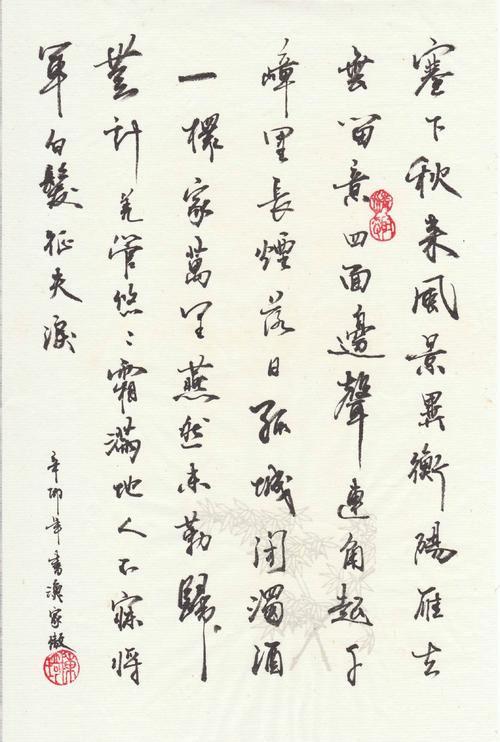 塞下秋来風景異衡陽雁去
無留意四面邊聲連角起千
嶂里長煙落日孤城閉濁酒
一杯家萬里燕然未勒歸
無計羌管悠〻霜滿地人不寐將
軍白髮征夫淚
辛卯年書漁家傲